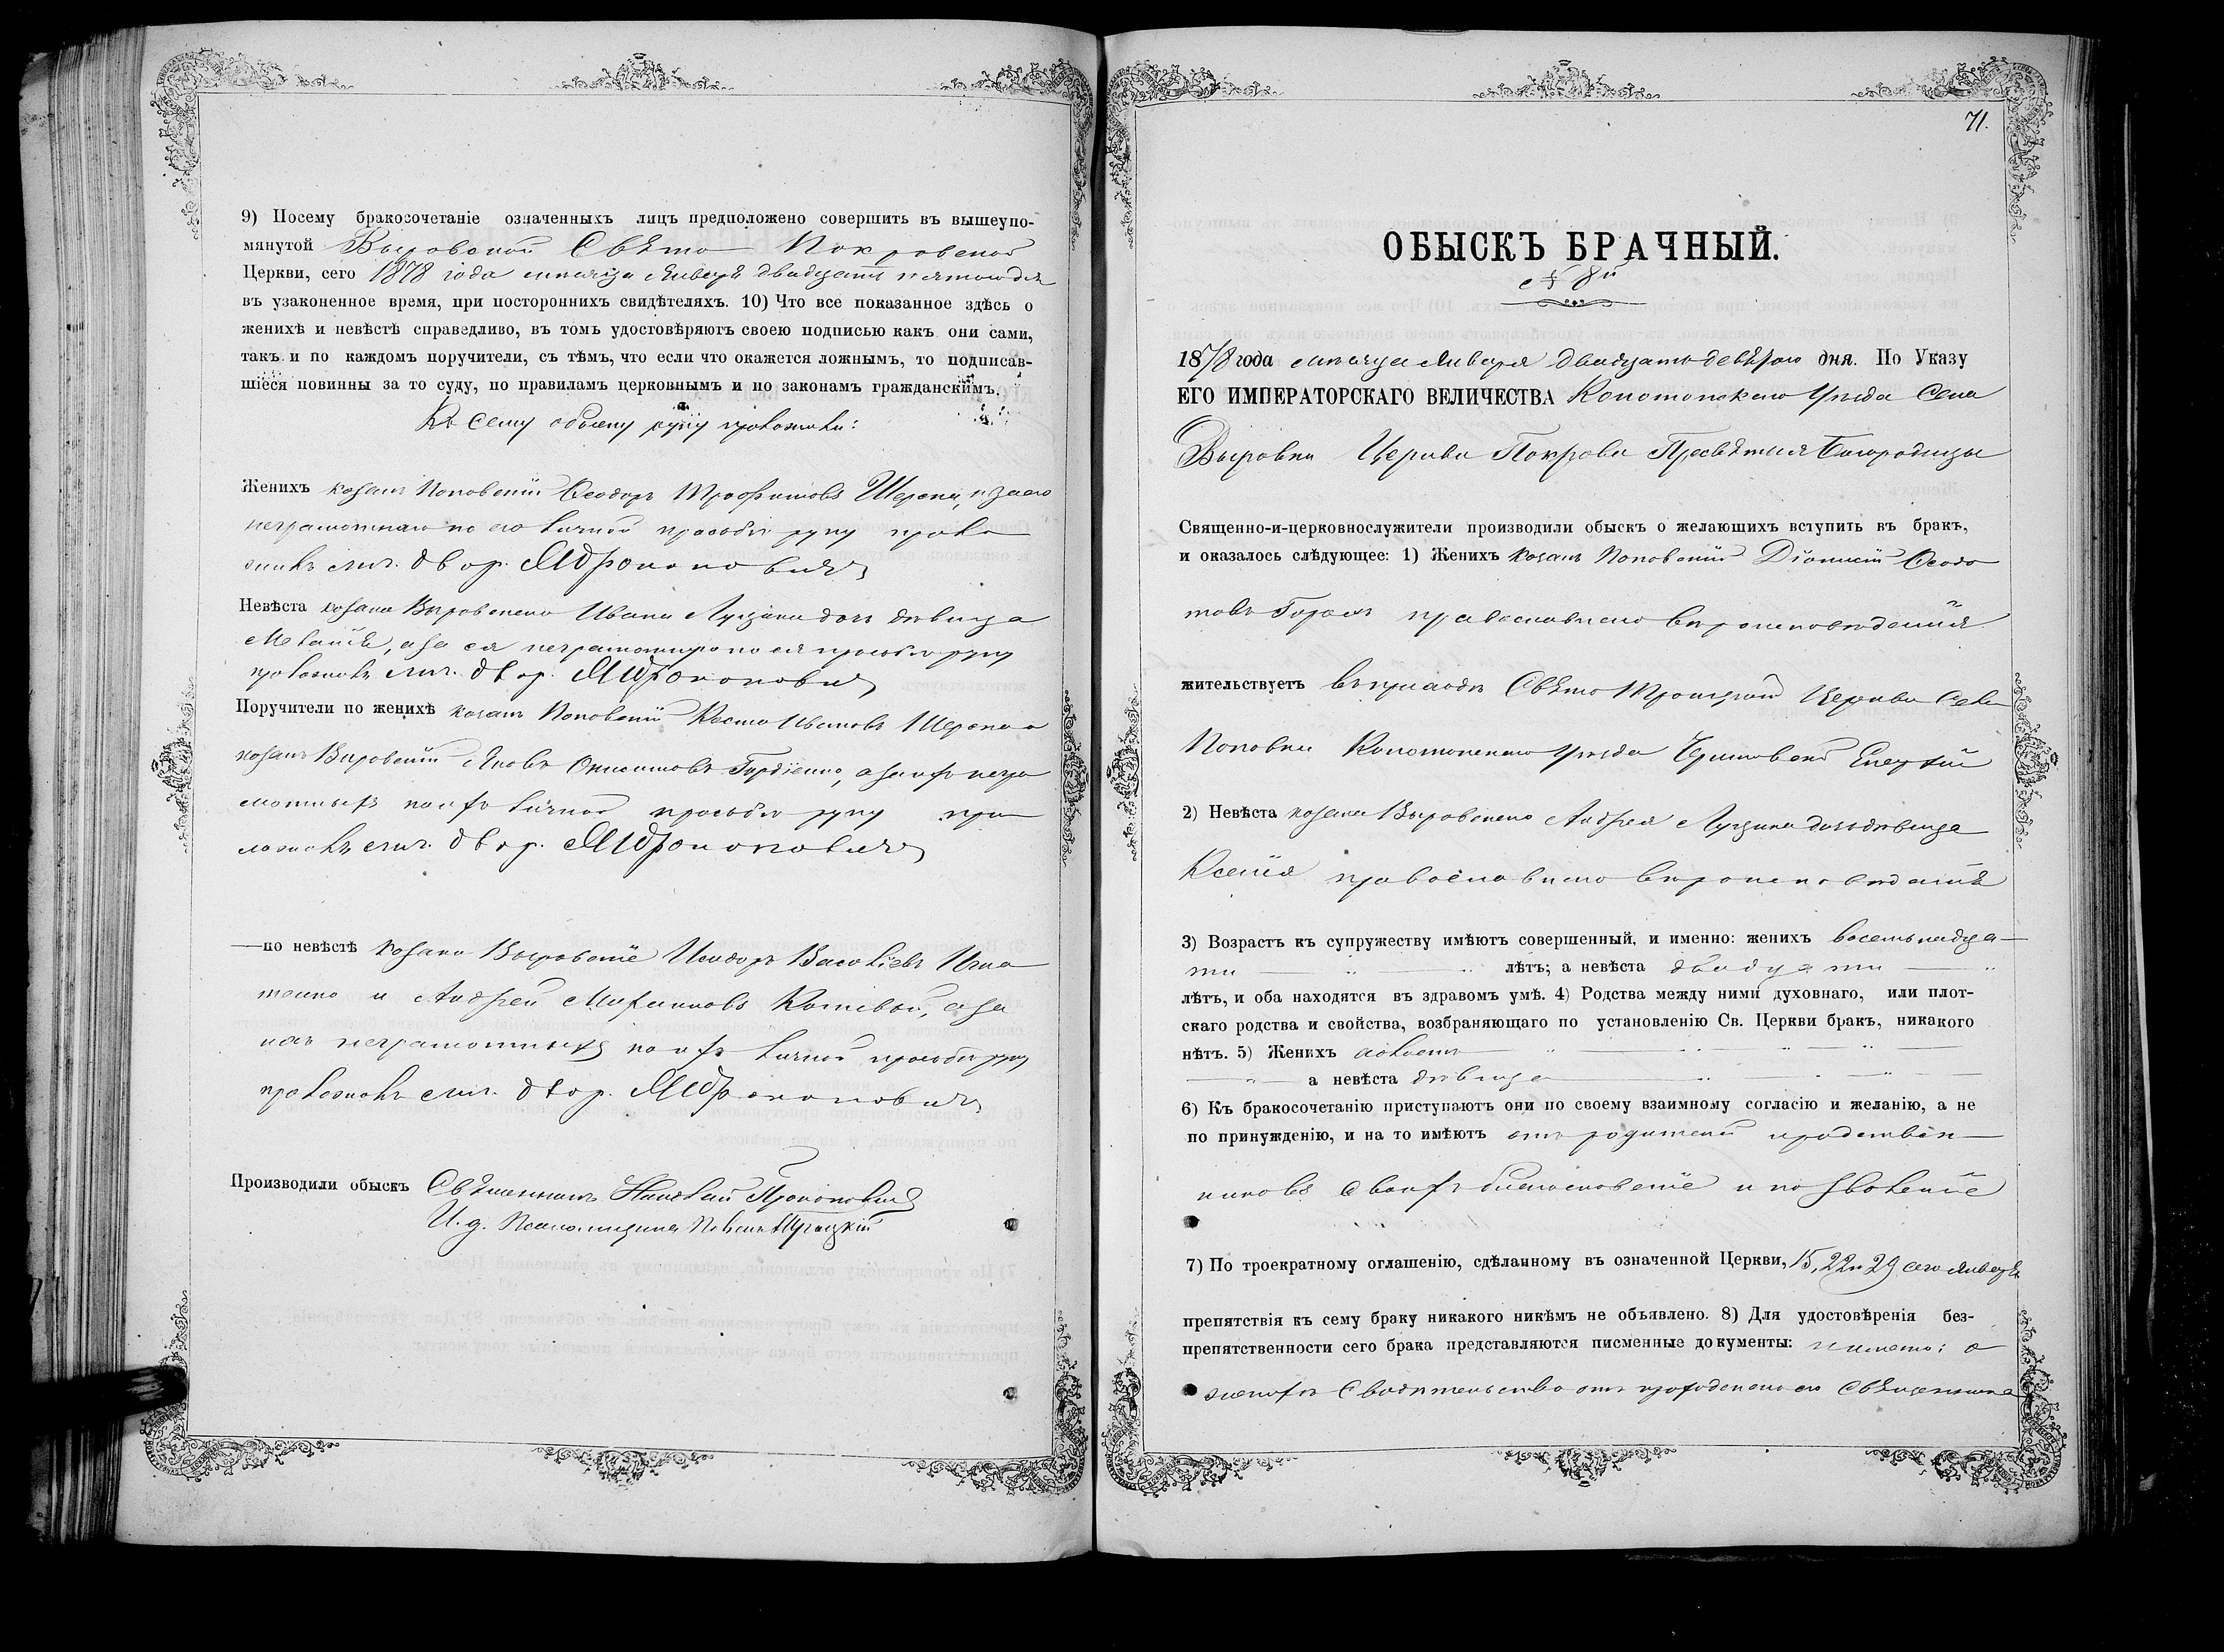 9) Посему бракосочетаніе означенныхъ лицъ предположено совершить въ вышеупо-
мянутой Выровской Свято Покровской
Церкви, сего 1878 года мѣсяца Января двадцать пятого дня
въ узаконенное время, при постороннихъ свидѣтеляхъ. 10) Что все показанное здѣсь о
женихѣ и невѣстѣ справедливо, въ томъ удостовѣряютъ своею подписью какъ они сами,
такъ и по каждомъ поручители, съ тѣмъ, что если что окажется ложнымъ, то подписав-
шіеся повинны за то суду, по правиламъ церковнымъ и по законамъ гражданскимъ.
Къ сему обыску руку приложили:
Женихъ козакъ Поповскій Ѳеодоръ Трофимовъ а за его
неграмотнаго по его личной прозьбѣ руку прило
жилъ двор. М Прокоповичъ
Невѣста козака Выровского Ивана Луцика дочь дѣвица
а за ея неграмотную по ея прозьбѣ руку
приложилъ двор. М Прокоповичъ
Поручители по женихѣ козакъ Поповскій Косма Ивановъ
козакъ Выровскій Яковъ Гордіенко, а за ихъ негра
мотныхъ по ихъ личной прозьбѣ руку при
ложилъ двор. М Прокоповичъ
по невѣстѣ козаки Выровскіе Исидоръ Васильевъ Игна
тенко и Андрей Котевый, а за
ихъ неграмотныхъ по ихъ личной прозьбѣ руку
приложилъ двор. М Прокоповичъ
Производили обыскъ Священникъ Николай Прокоповичъ
И. д. Псаломщика
71.
ОБЫСКЪ БРАЧНЫЙ.
№ 8й
1878 года мѣсяца Января двадцать девятого дня. По Указу
ЕГО ИМПЕРАТОРСКАГО ВЕЛИЧЕСТВА Конотопского Уѣзда Села
Выровки Церкви Покрова Пресвятыя Богородицы
Священно-и-церковнослужители производили обыскъ о желающихъ вступить въ бракъ,
и оказалось слѣдующее: 1) Женихъ козакъ Поповскій Діонисій Ѳеодо
товъ православного вѣроисповѣданія
жительствуетъ въ приходѣ Свято Троицкой Церкви Села
Поповки Конотопского Уѣзда Черниговской Епархіи
2) Невѣста козака Выровского Андрея Луцика дочь дѣвица
Ксенія православного вѣроисповѣданія
3) Возрастъ къ супружеству имѣютъ совершенный, и именно: женихъ восемьнадца-
ти лѣтъ; а невѣста двадцати
лѣтъ, и оба находятся въ здравомъ умѣ. 4) Родства между ними духовнаго, или плот-
скаго родства и свойства, возбраняющаго по установленію Св. Церкви бракъ, никакого
нѣтъ. 5) Женихъ холостъ
а невѣста дѣвица
6) Къ бракосочетанію приступаютъ они по своему взаимному согласію и желанію, а не
по принужденію, и на то имѣютъ отъ родителей и родствен-
никовъ своихъ благословеніе и позволеніе
7) По троекратному оглашенію, сдѣланному въ означенной Церкви, 15, 22 и 29 сего Января
препятствія къ сему браку никакого никѣмъ не объявлено. 8) Для удостовѣренія без-
препятственности сего брака представляются писменные документы: именно: о
женихѣ свидѣтельство отъ приходского его священника